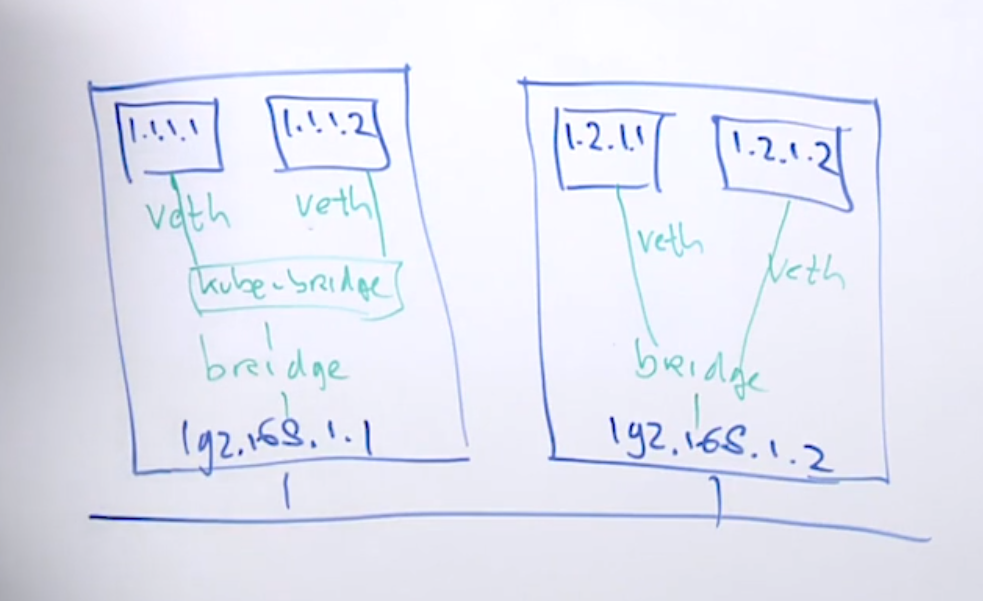 1.1.1.1 1.1.1.2
veth veth
kube-bridge
bridge
192.168.1.1
1.2.1.1 1.2.1.2
veth veth
bridge
192.168.1.2